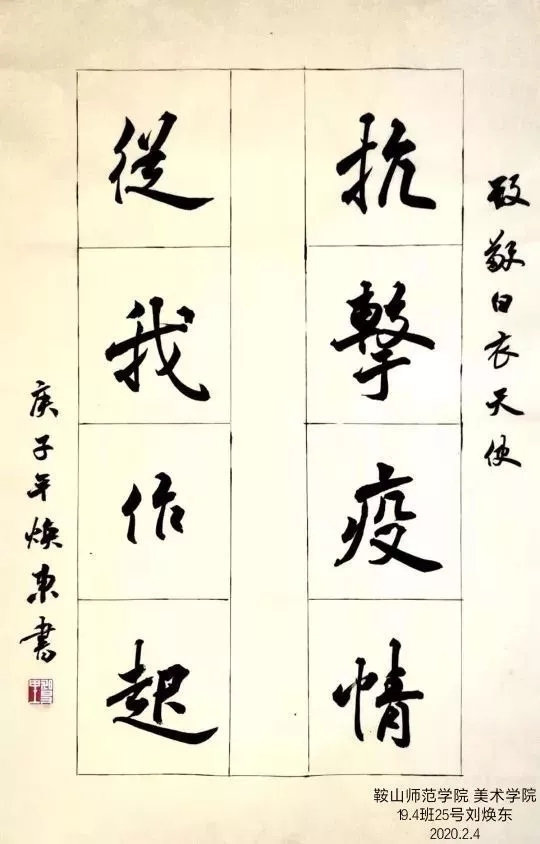 致敬白衣天使
抗擊疫情
從我作起
庚子年焕東書
鞍山师范学院 美术学院
19.4班25号刘焕东
2020.2.4